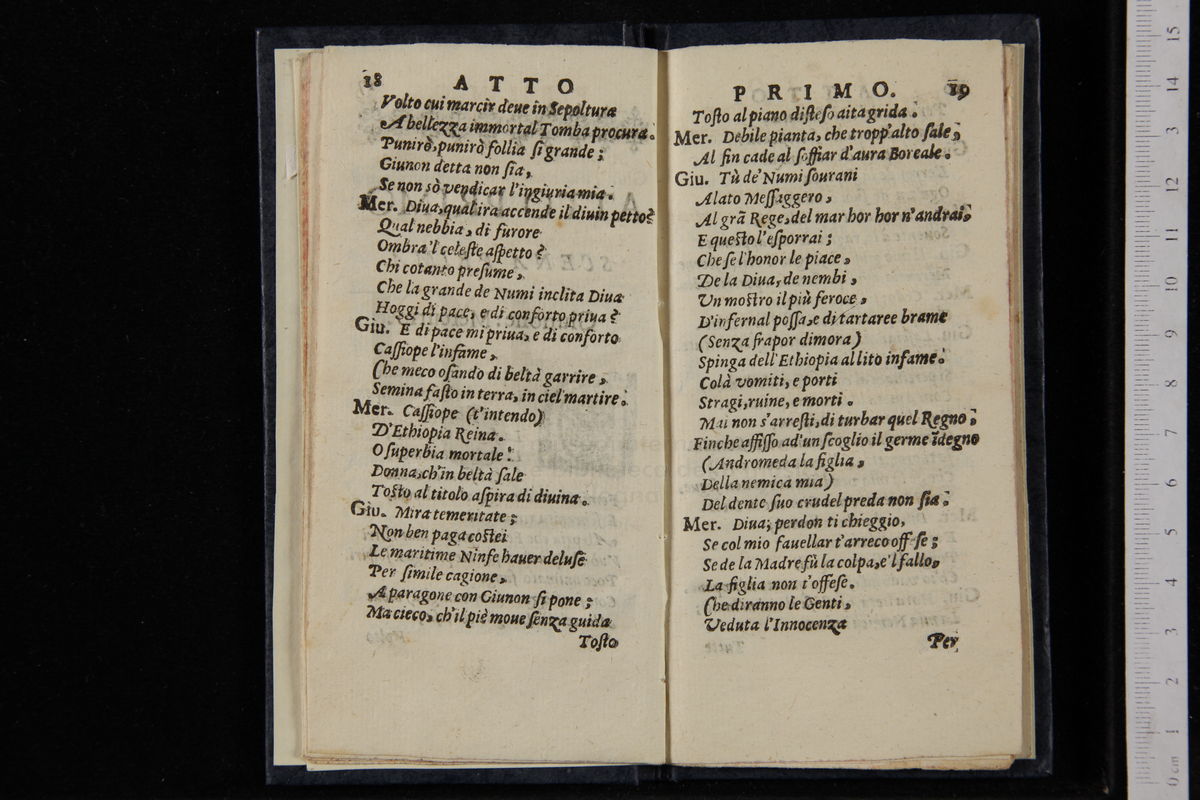 18 ATTO
Volto cui marcir deue in Sepoltura
A bellezza immortal Tomba procura.
Punirò, punirò follia sì grande;
Giunon detta non sia,
Se non sò vendicar l'ingiuria mia.
Mer. Diua, qual ira accende il diuin petto?
Qual nebbia, di furore
Ombra'l celeste aspetto?
Chi cotanto presume,
Che la grande de Numi inclita Diua
Hoggi di pace, e di conforto priua?
Giu. E di pace mi priua, e di conforto
Cassiope l'infame,
Che meco osando di beltà garrire,
Semina fasto in terra, in ciel martire.
Mer. Cassiope (t'intendo)
D'Ethiopia Reina.
O superbia mortale!
Donna, ch'in beltà sale
Tosto al titolo aspira di diuina.
Giu. Mira temeritate;
Non ben paga costei
Le maritime Ninfe hauer deluse
Per simile cagione,
A paragone con Giunon si pone;
Ma cieco, ch'il piè moue senza guida
Tosto
PRIMO. 19
Tosto al piano disteso aita grida.
Mer. Debile pianta, che tropp'alto sale,
Al fin cade al soffiar d'aura Boreale.
Giu. Tù de' Numi sourani
Alato Messaggero,
Al grã Rege, del mar hor hor n'andrai,
E questo l'esporrai;
Che se l'honor le piace,
De la Diua, de nembi,
Vn mostro il più feroce,
D'infernal possa, e di tartaree brame
(Senza frapor dimora)
Spinga dell'Ethiopia al lito infame.
Colà vomiti, e porti
Stragi, ruine, e morti.
Mai non s'arresti, di turbar quel Regno;
Finche affisso ad'un scoglio il germe ĩdegno
(Andromeda la figlia,
Della nemica mia)
Del dente suo crudel preda non sia.
Mer. Diua; perdon ti chieggio,
Se col mio fauellar t'arreco offese;
Se de la Madre fù la colpa, e'l fallo,
La figlia non t'offese.
Che diranno le Genti,
Veduta l'Innocenza
Per
15
14
13
12
11
10
9
8
7
6
5
4
3
2
1
0 cm